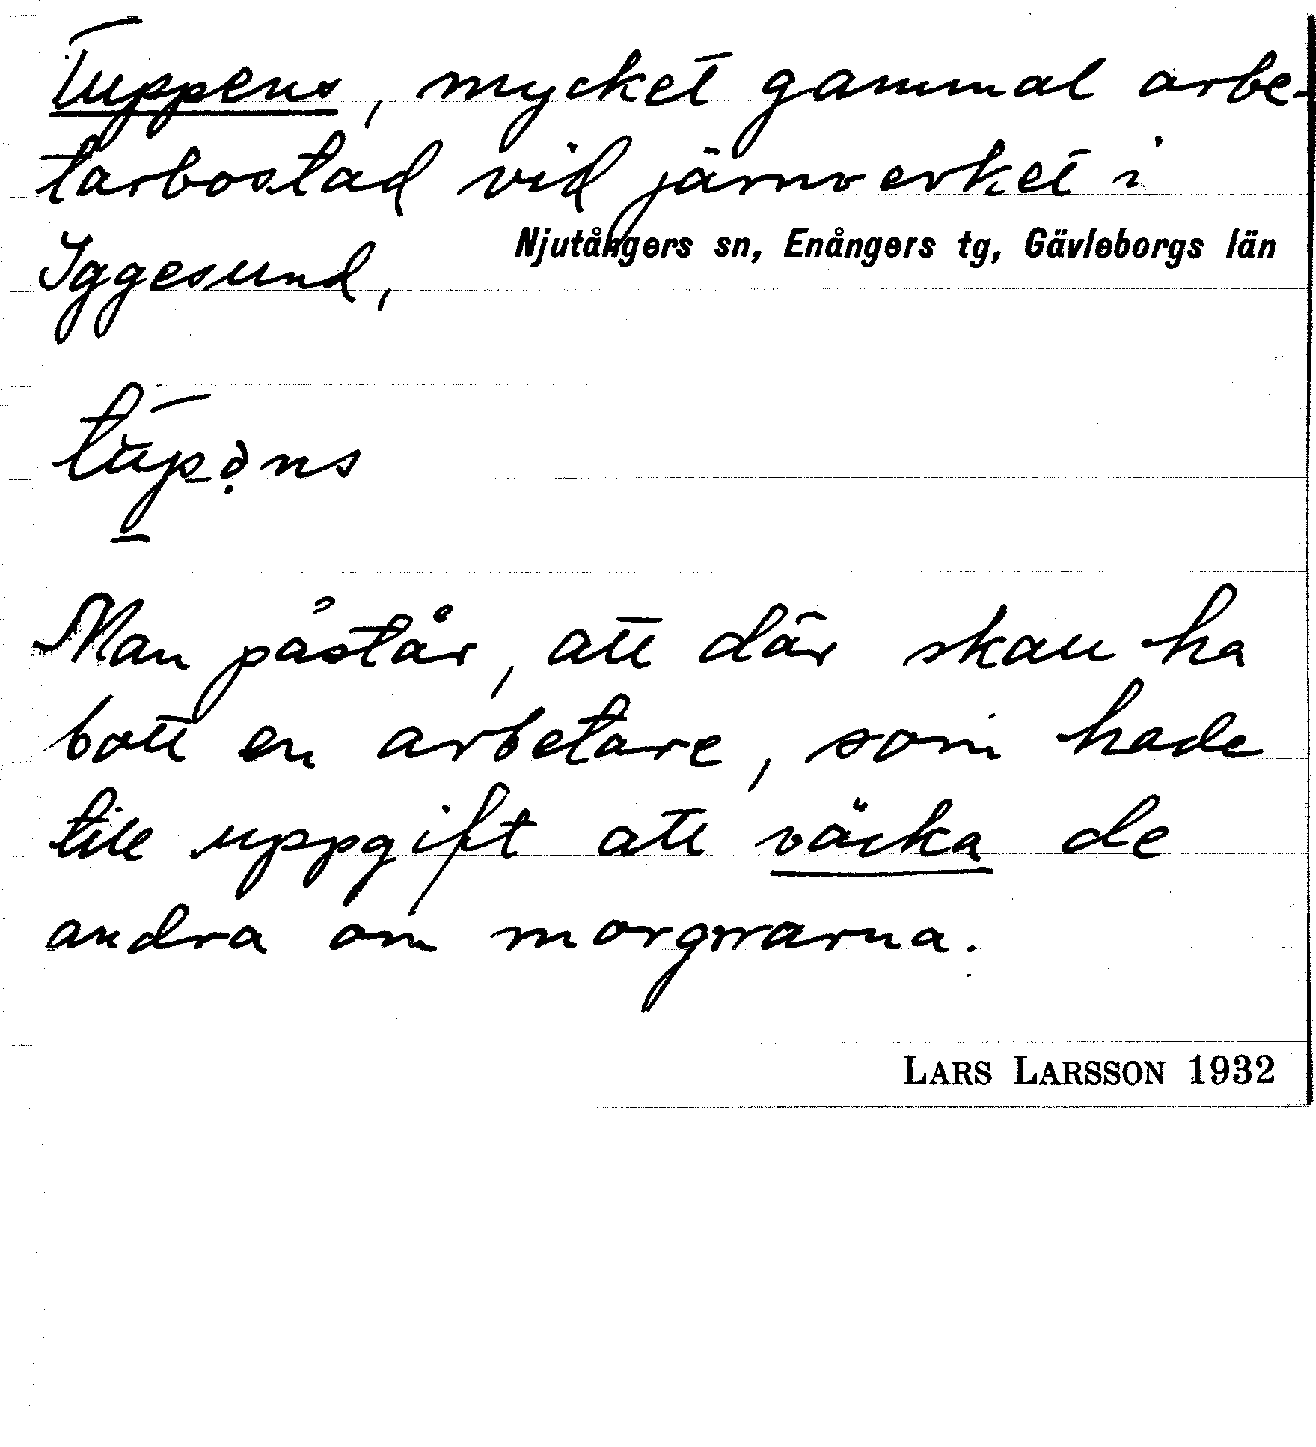 Tuppens, mycket gammal arbe-
tarbostad vid järnverket i
Njutångers sn, Enångers tg, Gävleborgs län
Iggesund,
Man påstår, att där skall ha
bott en arbetare, som hade
till uppgift att väcka de
andra om morgnarna.
LARS LARSSON 1932